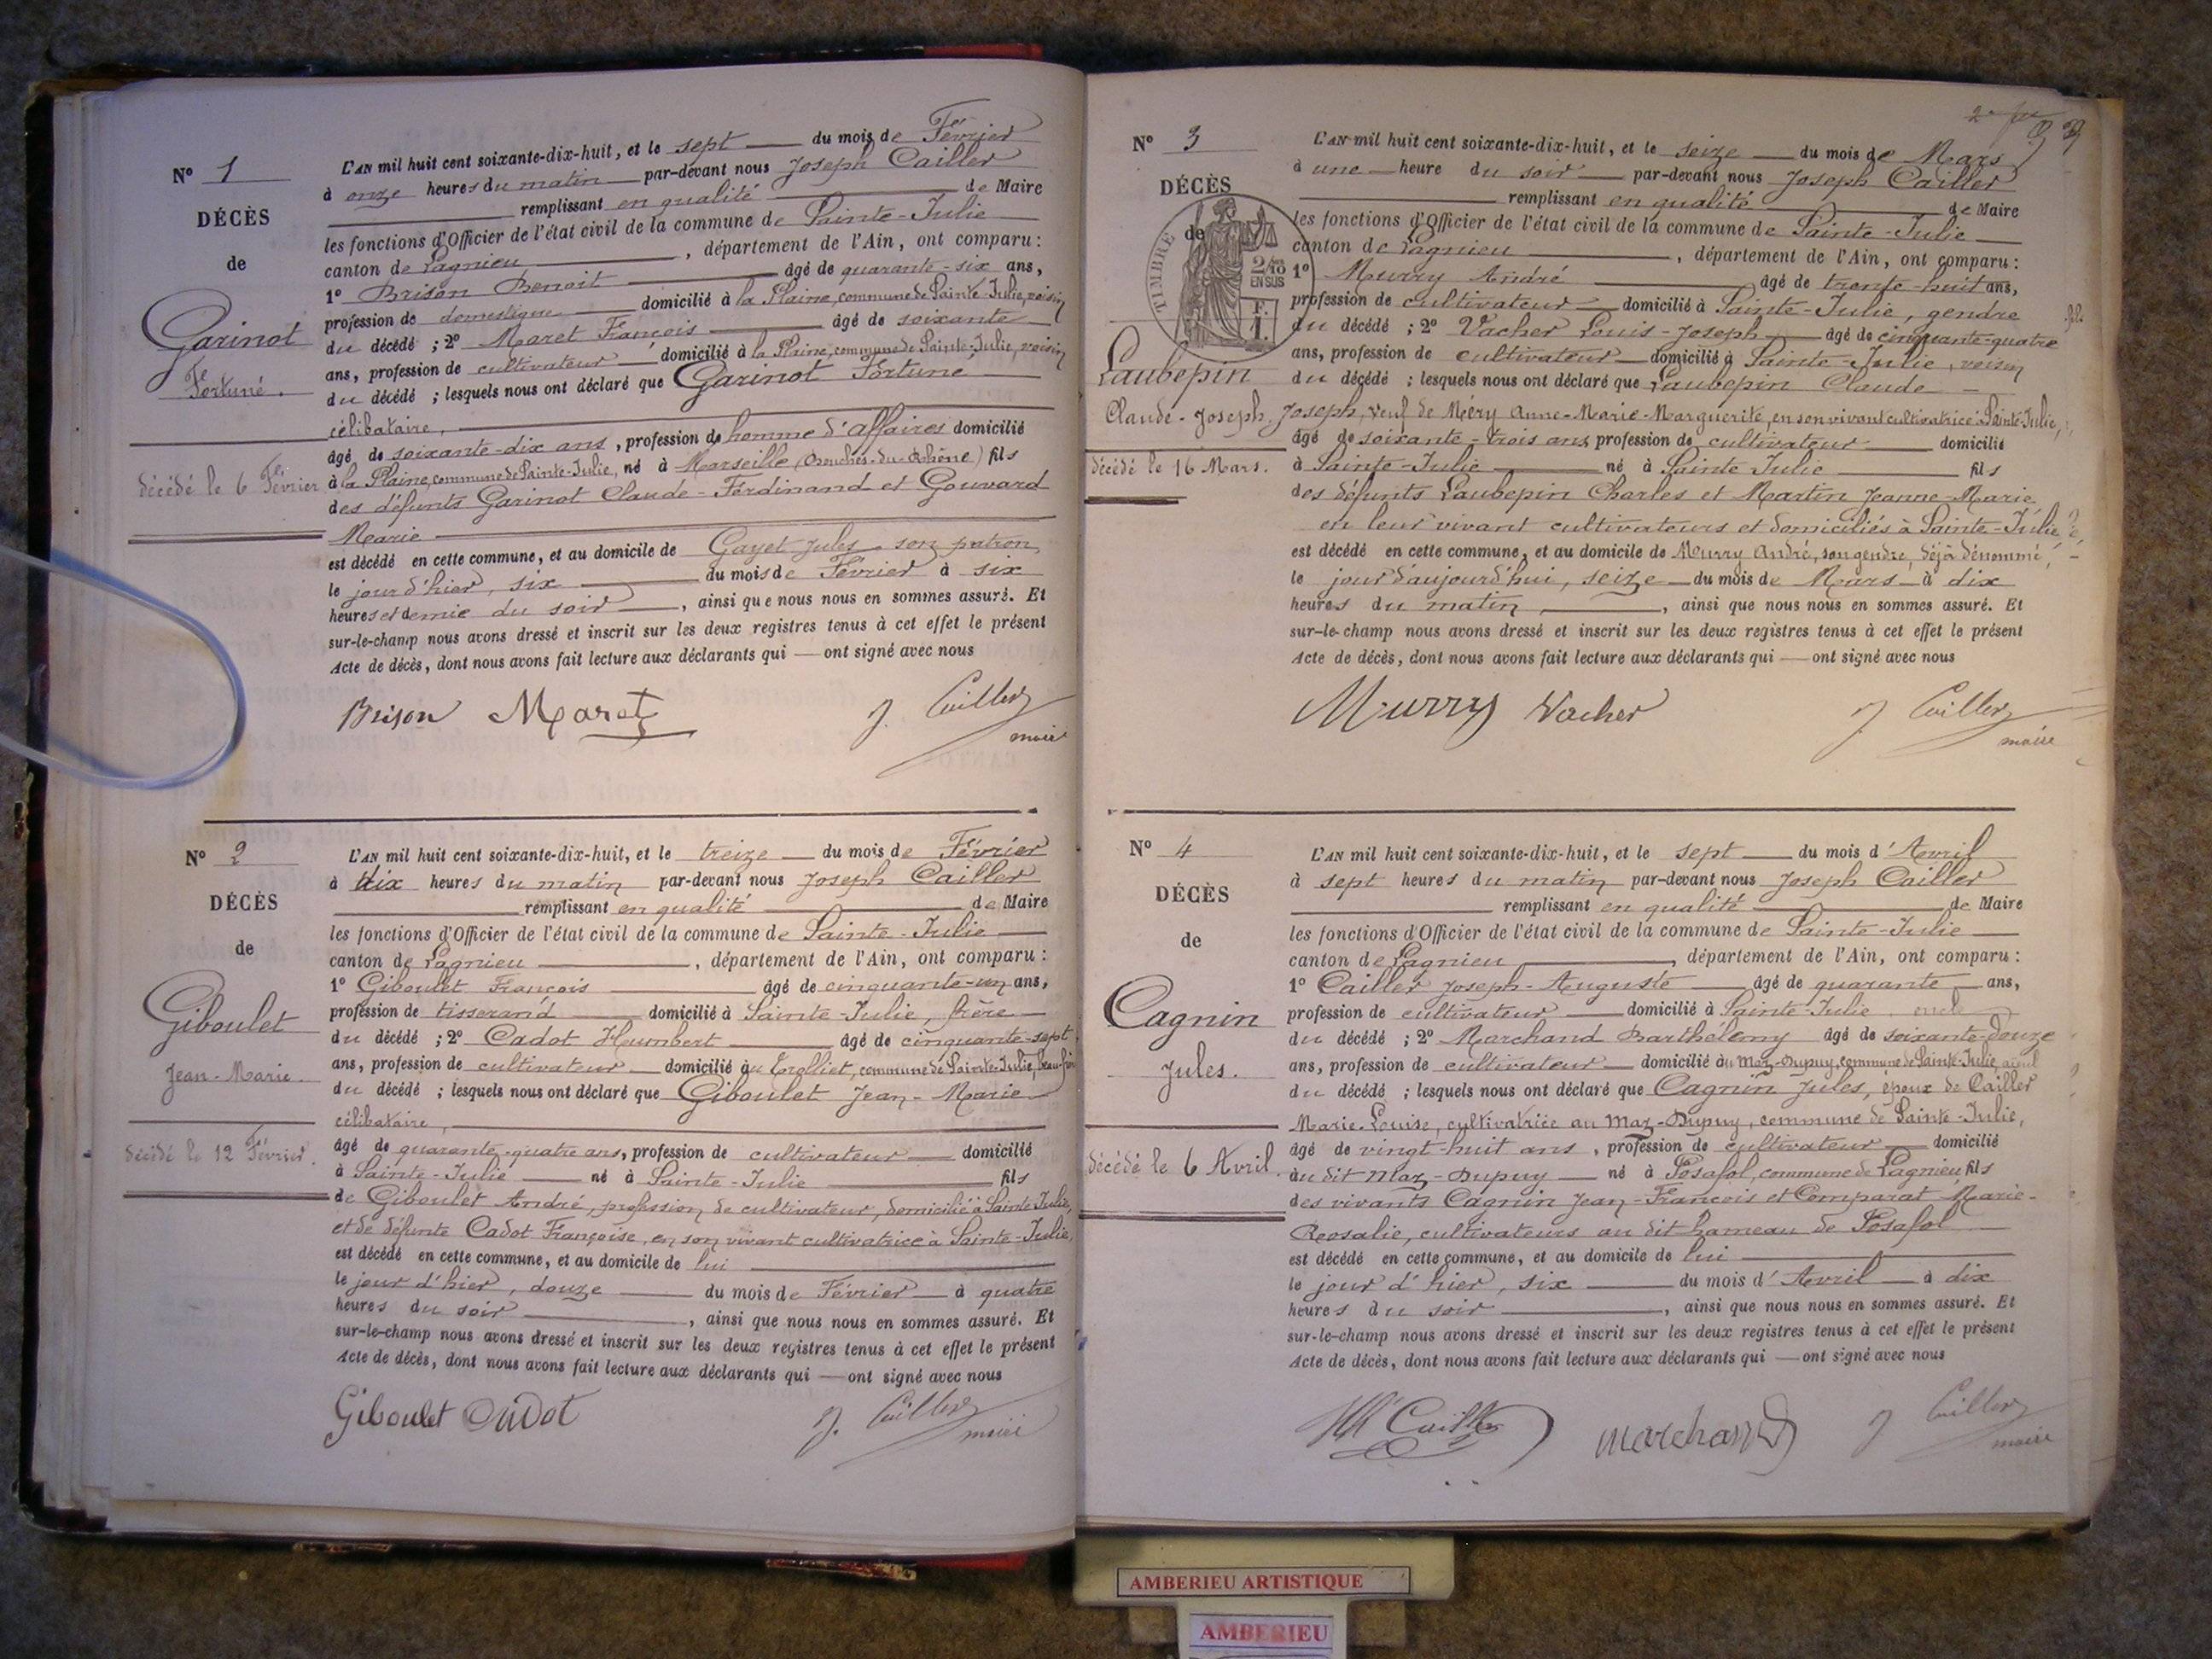 N° 1
DÉCÈS
de
Garinot
Fortuné.
décédé le 6 Février
L'AN mil huit cent soixante-dix-huit, et le sept du mois de Février
à onze heures du matin par-devant nous Joseph Cailler
remplissant en qualité de Maire
les fonctions d'Officier de l'état civil de la commune de Sainte-Julie
canton de Lagnieu, département de l'Ain, ont comparu :
1° Brison Benoit âgé de quarante-six ans,
profession de domestique domicilié à la Plaine, commune de Sainte-Julie, voisin
du décédé ; 2° Maret François âgé de soixante
ans, profession de cultivateur domicilié à la Plaine, commune de Sainte-Julie, voisin
du décédé ; lesquels nous ont déclaré que Garinot Fortuné
célibataire,
âgé de soixante-dix ans, profession de homme d'affaires domicilié
à la Plaine, commune de Sainte-Julie, né à Marseille (Bouches-du-Rhône) fils
des défunts Garinot Claude-Ferdinand et Gouvard
Marie
est décédé en cette commune, et au domicile de Gayet Jules, son patron,
le jour d'hier, six du mois de Février à six
heures et demie du soir, ainsi que nous nous en sommes assuré. Et
sur-le-champ nous avons dressé et inscrit sur les deux registres tenus à cet effet le présent
Acte de décès, dont nous avons fait lecture aux déclarants qui — ont signé avec nous
Brison Maret J. Cailler
maire
N° 2
DÉCÈS
de
Giboulet
Jean-Marie.
décédé le 12 Février.
L'AN mil huit cent soixante-dix-huit, et le treize du mois de Février
à dix heures du matin par-devant nous Joseph Cailler
remplissant en qualité de Maire
les fonctions d'Officier de l'état civil de la commune de Sainte-Julie
canton de Lagnieu, département de l'Ain, ont comparu :
1° Giboulet François âgé de cinquante-un ans,
profession de tisserand domicilié à Sainte-Julie, frère
du décédé ; 2° Cadot Humbert âgé de cinquante-sept
ans, profession de cultivateur domicilié au Trolliet, commune de Sainte-Julie,
du décédé ; lesquels nous ont déclaré que Giboulet Jean-Marie
célibataire,
âgé de quarante-quatre ans, profession de cultivateur domicilié
à Sainte-Julie né à Sainte-Julie fils
de Giboulet André, profession de cultivateur, domicilié à Sainte-Julie,
et de défunte Cadot Françoise, en son vivant cultivatrice à Sainte-Julie,
est décédé en cette commune, et au domicile de lui
le jour d'hier, douze du mois de Février à quatre
heures du soir, ainsi que nous nous en sommes assuré. Et
sur-le-champ nous avons dressé et inscrit sur les deux registres tenus à cet effet le présent
Acte de décès, dont nous avons fait lecture aux déclarants qui — ont signé avec nous
Giboulet Cadot J. Cailler
maire
N° 3
DÉCÈS
de
TIMBRE
2/10
EN SUS
F.
1.
Laubepin
Claude-Joseph.
décédé le 16 Mars.
L'AN mil huit cent soixante-dix-huit, et le seize du mois de Mars
à une heure du soir par-devant nous Joseph Cailler
remplissant en qualité de Maire
les fonctions d'Officier de l'état civil de la commune de Sainte-Julie
canton de Lagnieu, département de l'Ain, ont comparu :
1° Murry André âgé de trente-huit ans,
profession de cultivateur domicilié à Sainte-Julie, gendre
du décédé ; 2° Vacher Louis-Joseph âgé de cinquante-quatre
ans, profession de cultivateur domicilié à Sainte-Julie, voisin
du décédé ; lesquels nous ont déclaré que Laubepin Claude-
Joseph, veuf de Méry Anne-Marie-Marguerite, en son vivant cultivatrice à Sainte-Julie,
âgé de soixante-trois ans, profession de cultivateur domicilié
à Sainte-Julie né à Sainte-Julie fils
des défunts Laubepin Charles et Martin Jeanne-Marie,
en leur vivant cultivateurs et domiciliés à Sainte-Julie,
est décédé en cette commune, et au domicile de Murry André, son gendre, déjà dénommé,
le jour d'aujourd'hui, seize du mois de Mars à dix
heures du matin, ainsi que nous nous en sommes assuré. Et
sur-le-champ nous avons dressé et inscrit sur les deux registres tenus à cet effet le présent
Acte de décès, dont nous avons fait lecture aux déclarants qui — ont signé avec nous
Murry Vacher J. Cailler
maire
N° 4
DÉCÈS
de
Cagnin
Jules.
décédé le 6 Avril.
L'AN mil huit cent soixante-dix-huit, et le sept du mois d'Avril
à sept heures du matin par-devant nous Joseph Cailler
remplissant en qualité de Maire
les fonctions d'Officier de l'état civil de la commune de Sainte-Julie
canton de Lagnieu, département de l'Ain, ont comparu :
1° Cailler Joseph-Auguste âgé de quarante ans,
profession de cultivateur domicilié à Sainte-Julie, oncle
du décédé ; 2° Marchand Barthélemy âgé de soixante-douze
ans, profession de cultivateur domicilié au Maz-Dupuy, commune de Sainte-Julie, aïeul
du décédé ; lesquels nous ont déclaré que Cagnin Jules, époux de Cailler
Marie-Louise, cultivatrice au Maz-Dupuy, commune de Sainte-Julie,
âgé de vingt-huit ans, profession de cultivateur domicilié
au dit Maz-Dupuy né à Posafol, commune de Lagnieu fils
des vivants Cagnin Jean-François et Comparat Marie-
Rosalie, cultivateurs au dit hameau de Posafol
est décédé en cette commune, et au domicile de lui
le jour d'hier, six du mois d'Avril à dix
heures du soir, ainsi que nous nous en sommes assuré. Et
sur-le-champ nous avons dressé et inscrit sur les deux registres tenus à cet effet le présent
Acte de décès, dont nous avons fait lecture aux déclarants qui — ont signé avec nous
Cailler Marchand J. Cailler
maire
AMBERIEU ARTISTIQUE
AMBERIEU